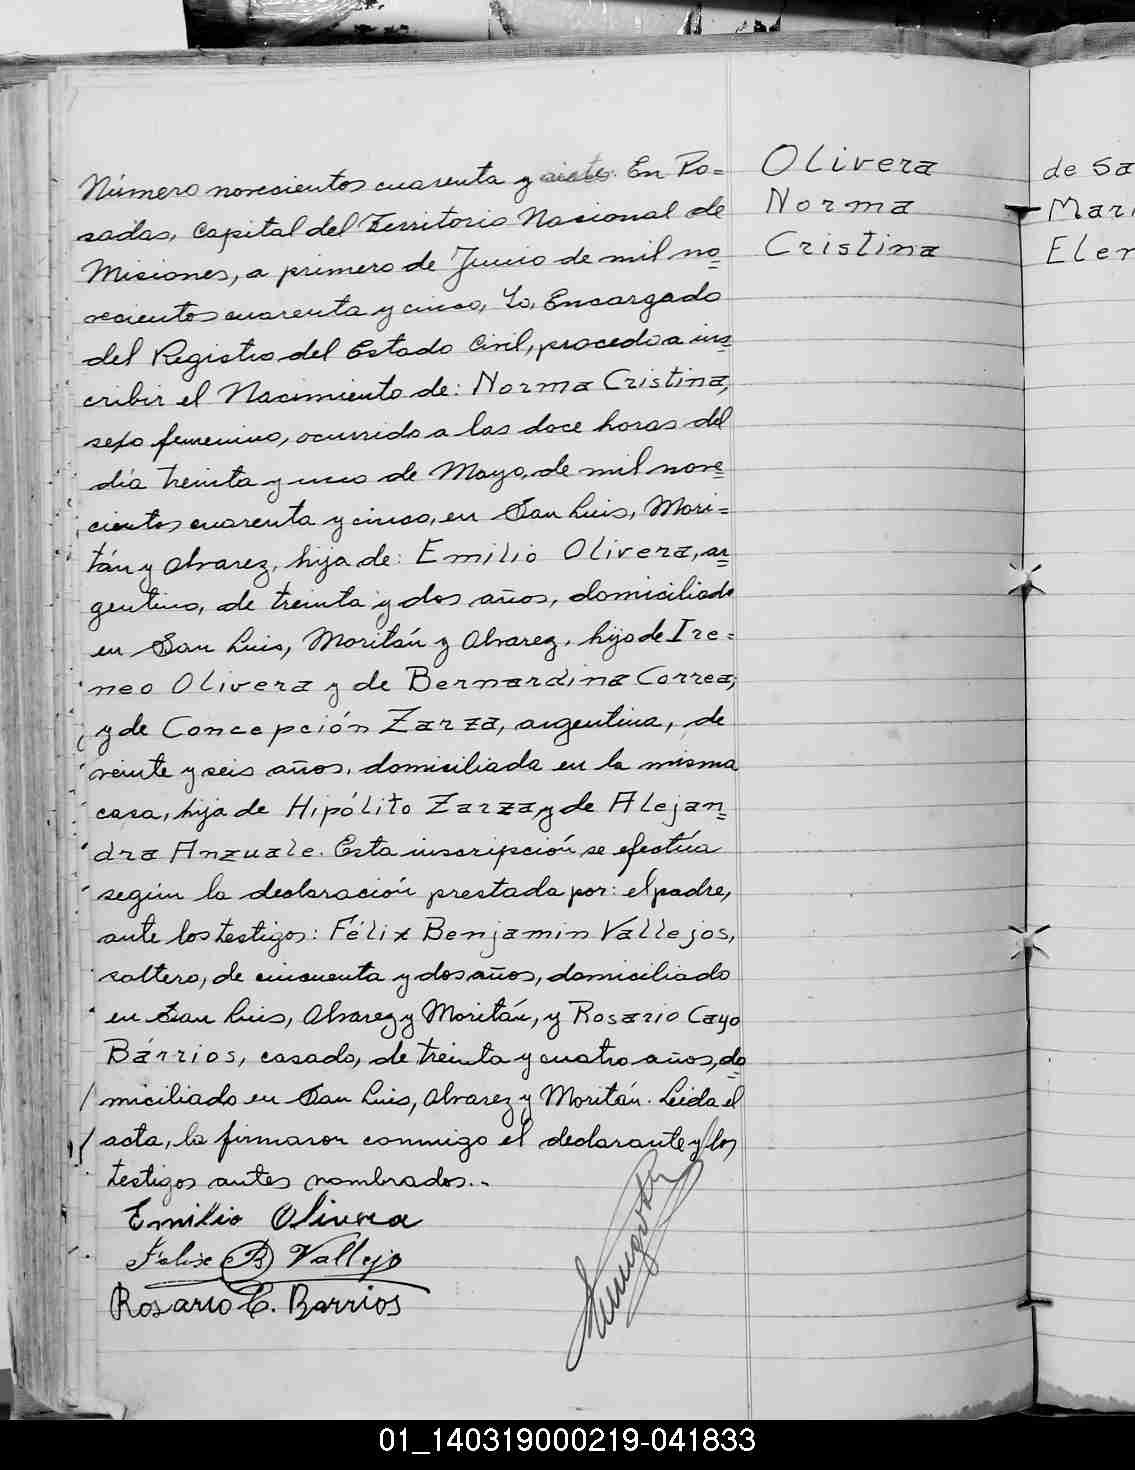 Número novecientos cuarenta y siete. En Po=
sadas, Capital del Territorio Nacional de
Misiones, a primero de Junio de mil no=
vecientos cuarenta y cinco, Yo, Encargado
del Registro del Estado Civil, procedo a ins=
cribir el Nacimiento de: Norma Cristina,
sexo femenino, ocurrido a las doce horas del
día treinta y uno de Mayo, de mil nove=
cientos cuarenta y cinco, en San Luis, Mori=
tán y Alvarez, hija de: Emilio Olivera, ar=
gentino, de treinta y dos años, domiciliado
en San Luis, Moritán y Alvarez, hijo de Ire=
neo Olivera y de Bernardina Correa;
y de Concepción Zarza, argentina, de
veinte y seis años, domiciliada en la misma
casa, hija de Hipólito Zarza y de Alejan=
dra Anzuale. Esta inscripción se efectúa
según la declaración prestada por: el padre,
ante los testigos: Félix Benjamin Vallejos,
soltero, de cincuenta y dos años, domiciliado
en San Luis, Alvarez y Moritán, y Rosario Cayo
Bárrios, casado, de treinta y cuatro años, do=
miciliado en San Luis, Alvarez y Moritán. Leida el
acta, la firmaron conmigo el declarante y los
testigos antes nombrados..
Emilio Olivera
Felix B Vallejo
Rosario C. Barrios
Olivera
Norma
Cristina
de Sa
Mari
Eler
01_140319000219-041833